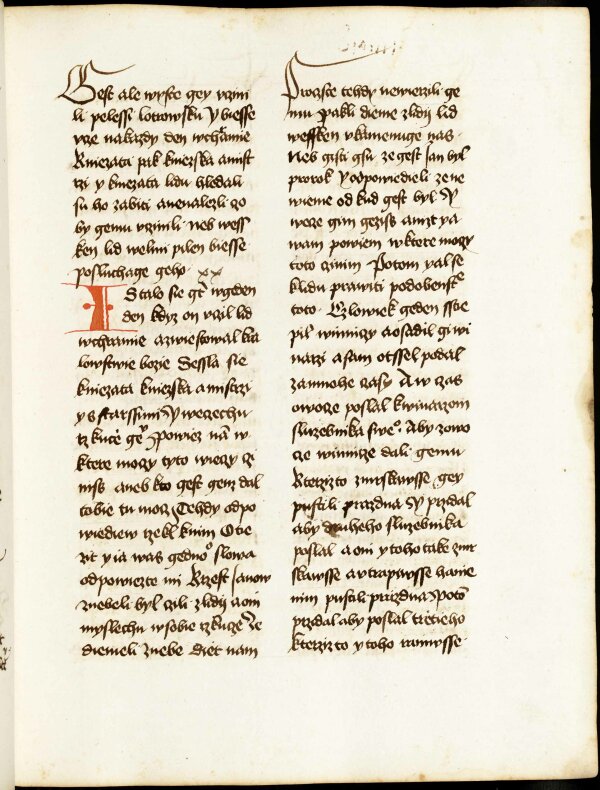 Gest ale wyste gey vczini
li pelessi lotrowsku Y biesse
vcze nakazdy den wchramie
Kniezata pak kniezska a mist
rzi y kniezata lidu hledali
su ho zabiti a nenalezli co
by gemu vczinili neb wess
ken lid welmi pilen biesse
posluchage geho xx
I Stalo sie gt wgeden
den kdyz on vczil lid
wchramie a zwiestowal kra
lowstwie bozie Sessla sie
kniezata kniezska a mistrzi
y s starssimi Y wecechu
rzkuce ge Powiez na w
ktere moczy tyto wieczy czi
niss aneb kto gest genz dal
tobie tu mocz Tehdy odpo
wiediew rzekl knim Otie
zit y ia was gedno slowa
odpowiezte mi Krzest Janow
znebeli byl czili zlidij a oni
myslechu wsobie rzkucze Ze
diemeli znebe diet nam
Proczste tehdy newierzili ge
mu Pakli dieme zlidij lid
wessken vkamenuge nas
Neb gisti gsu ze gest Jan byl
prorok Y odpowiedieli ze ne
wieme od kud gest byl Y
wece gim geziss a nizt ya
wam powiem wktere moczy
toto czinim Potom yal se
klidu prawiti podobenstie
toto Czlowiek geden sstie
pil winniczy a osadil gi wi
narzi a sam otssel podal
zamnohe czasy A w czas
owocze poslal kwinarzom
sluzebnika sweo Aby zowo
cze winnicze dali gemu
Kterzizto zmrskawsse gey
pustili prazdna Y przidal
aby druheho sluzebnika
poslal a oni y toho take zmr
skawsse a vtrapiwsse hanie
nim pustili prazdna Y pot
przidal aby poslal tretieho
kterzizto y toho raniwsse